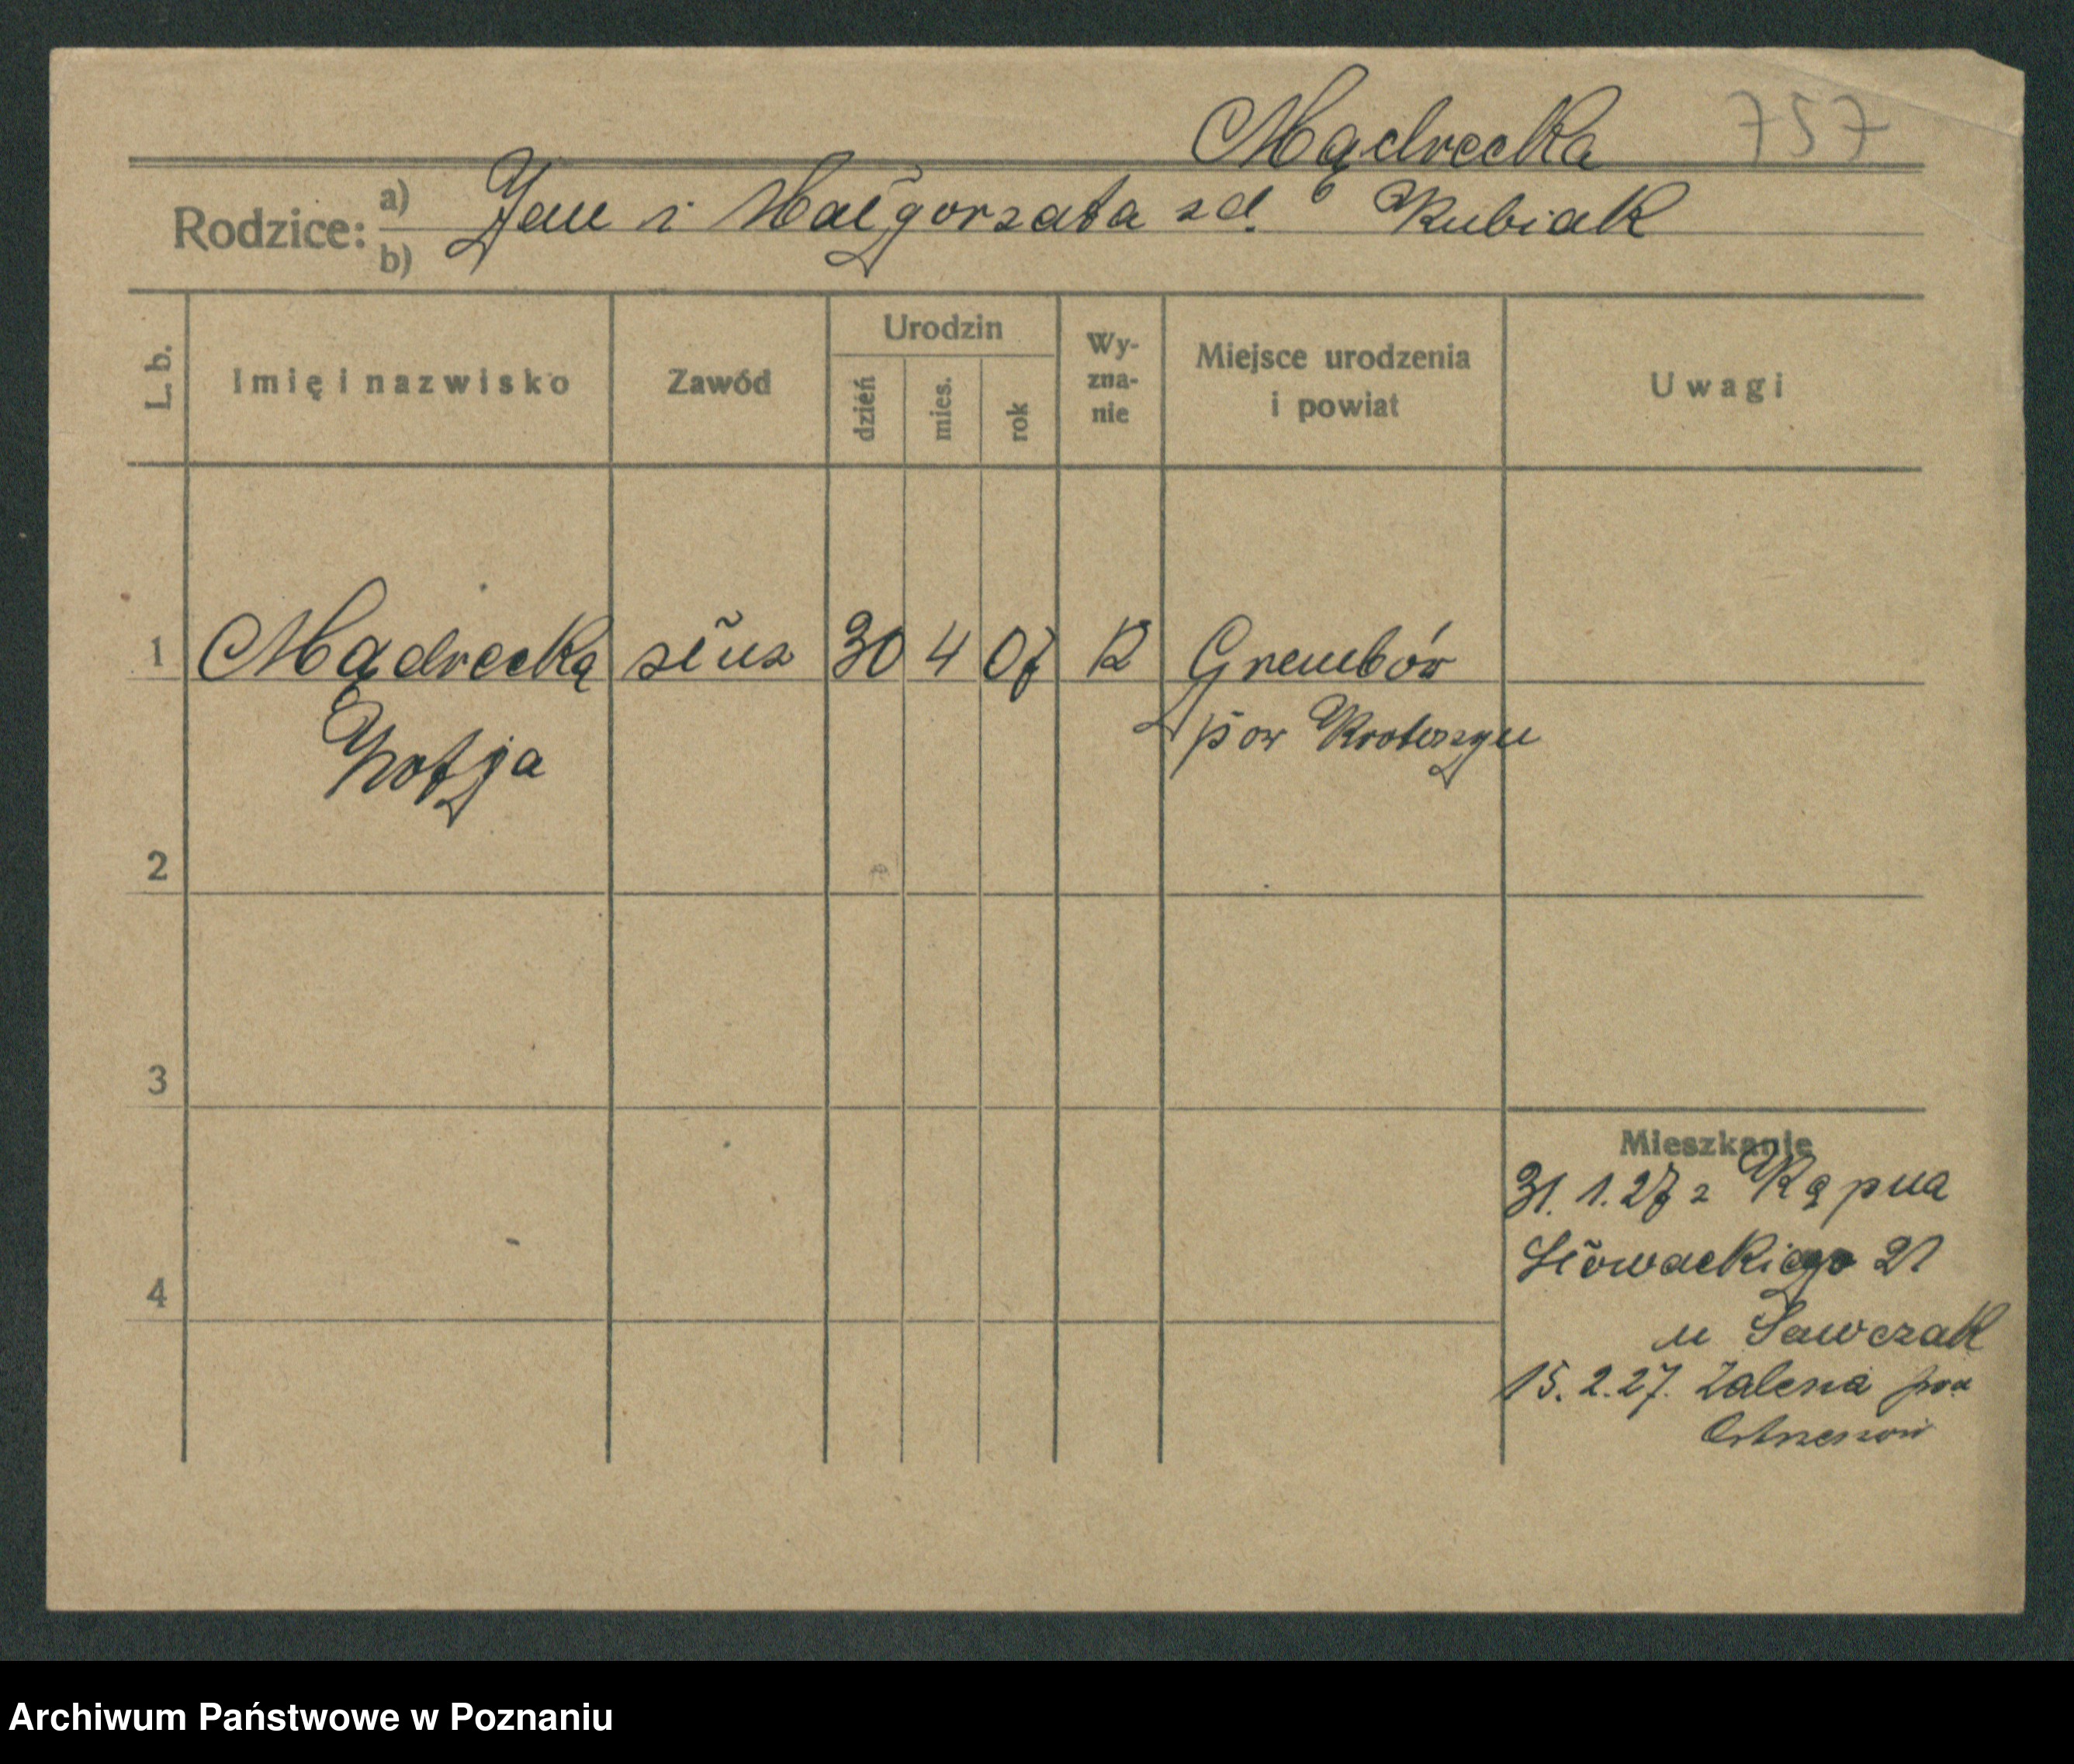 Mądrecka 757
Rodzice: a) b) Jan i Małgorzata zd. Kubiak
L. b. Imię i nazwisko Zawód Urodzin dzień mies. rok Wy-zna-nie Miejsce urodzenia i powiat Uwagi
1 Mądrecka służ 30 4 07 K Grembów
Zofja pow Krotoszyn
2
3
Mieszkanie
31.1.27 z Kąpna
Słowackiego 21
4
u Sawczak
15.2.27. Zalesia pow
Archiwum Państwowe w Poznaniu